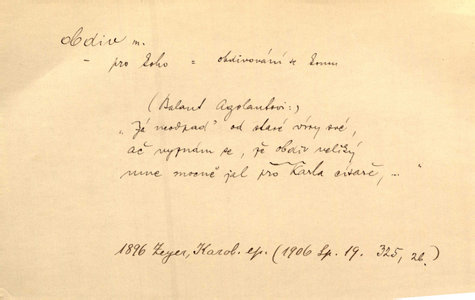 obdiv m.
– pro koho = obdivování se komu
(Balant Agolantovi:)
„Já neodpad' od staré víry své,
ač vyznám se, že obdiv veliký
mne mocně jal pro Karla císaře, – "
1896 Zeyer, Karol. ep. (1906 Sp. 19. 325, 26.)